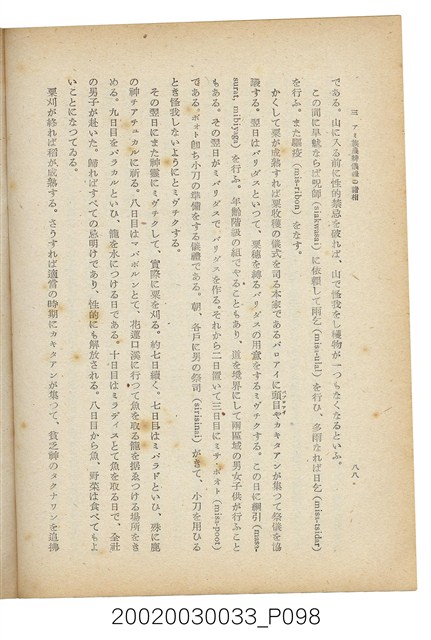 三 アミ族農耕儀禮の諸相
八八
である。山に入る前に性的禁忌を破れば、山で怪我をし獲物が一つもなくなるといふ。
この間に旱魃ならば呪師(siakwasai)に依頼して雨乞(misa-ulal)を行ひ、多雨なれば日乞(misa-tsidar)
を行ふ。また驅疫(mis-ribon)をなす。
かくして粟が成熟すれば粟收穫の儀式を司る本家であるパロアイに頭目やカキタアンが集つて祭儀を協
議する。翌日はパリダスといつて、粟穗を縛るパリダスの用意をするミヴチクする。この日に綱引(masa-
surat, mibiyoga)を行ふ。年齡階級の組でやることもあり、道を境界にして兩區域の男女子供が行ふこと
もある。その翌日がミパリダスで、パリダスを作る。それから二日置いて三日目にミサ・ポオト(misa-poot)
である。ポオト卽ち小刀の準備をする儀禮である。朝、各戸に男の祭司(sirisinai)がきて、小刀を用ひる
とき怪我しないようにとミヴチクする。
その翌日にまた神靈にミヴチクして、實際に粟を刈る。約七日續く。七日目はミパラドといひ、殊に鹿
の神サアチュカルに祈る。八日目はマパボルンとて、花蓮口溪に行つて魚を取る籠を据ゑつける場所をき
める。九日目をパラカルといひ、籠を水につける日である。十日目はミラディスとて魚を取る日で、全社
の男子が赴いた。歸ればすべての忌明けであり、性的にも解放される。八日目から魚、野菜は食べてもよ
いことになつてゐる。
粟刈が終れば稻が成熟する。さうすれば適當の時期にカキタアンが集つて、貧乏神のタクナワンを追拂
20020030033_P098